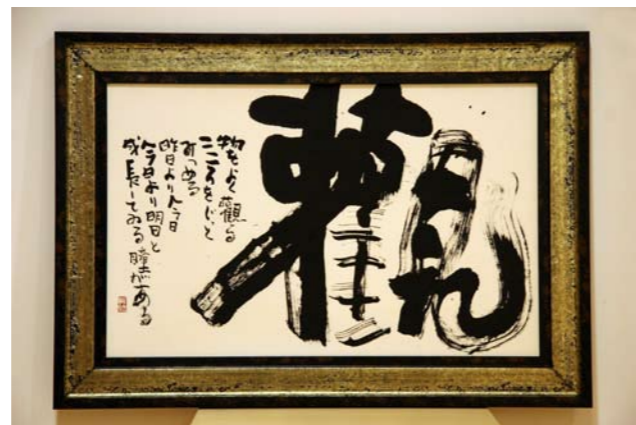 觀
物をよく觀る
こころをじっと
みつめる
昨日より今日
今日より明日と
成長してゐる瞳がある